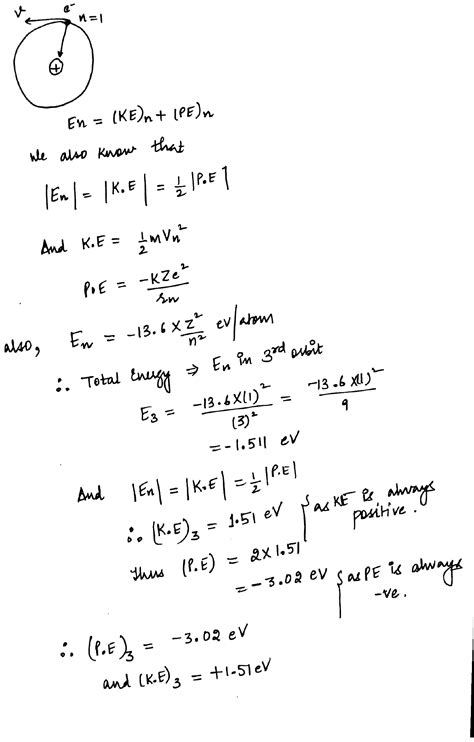 v e⁻ n=1
+
En = (KE)n + (PE)n
We also know that
|En| = |K.E| = 1/2 |P.E|
And K.E = 1/2 mVn²
P.E = -KZe²/rn
also, En = -13.6 × Z²/n² eV/atom
∴ Total Energy ⇒ En in 3rd orbit
E3 = -13.6×(1)²/(3)² = -13.6×(1)²/9
= -1.511 eV
And |En| = |K.E| = 1/2 |P.E|
∴ (K.E)3 = 1.51 eV } as KE is always positive.
Thus (P.E) = 2×1.51
= -3.02 eV } as PE is always -ve.
∴ (P.E)3 = -3.02 eV
and (K.E)3 = +1.51eV